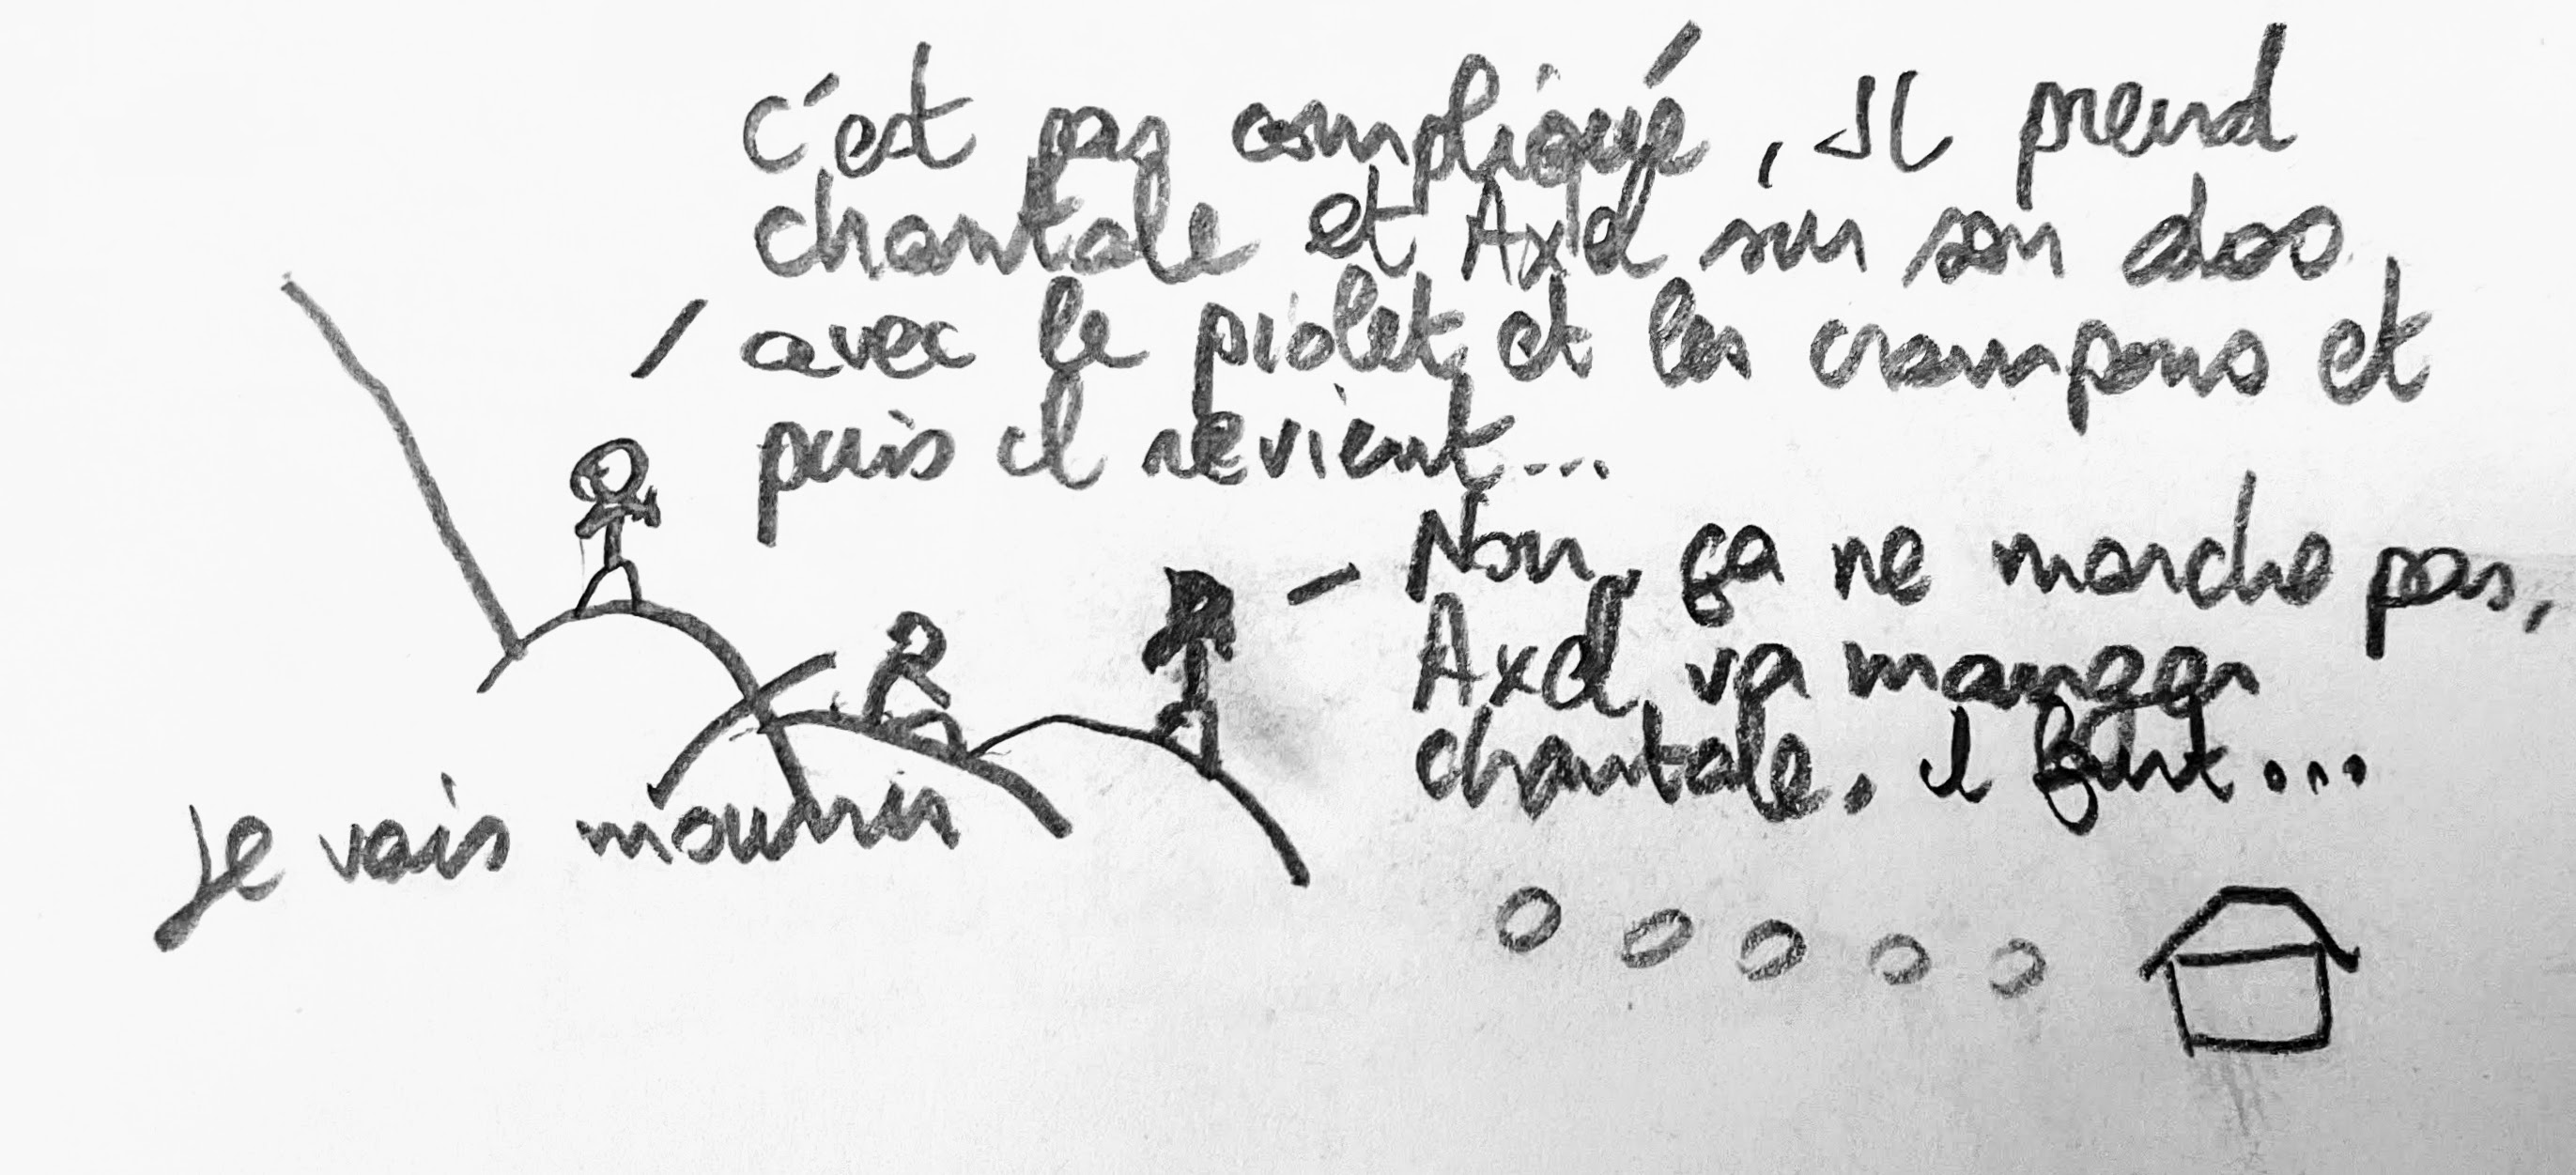 c'est pas compliqué, Il prend
chantale et Axel sur son dos
avec le piolet et les crampons et
puis il revient...
Non, ça ne marche pas,
Axel va manger
chantale. il faut...
Je vais mourrir